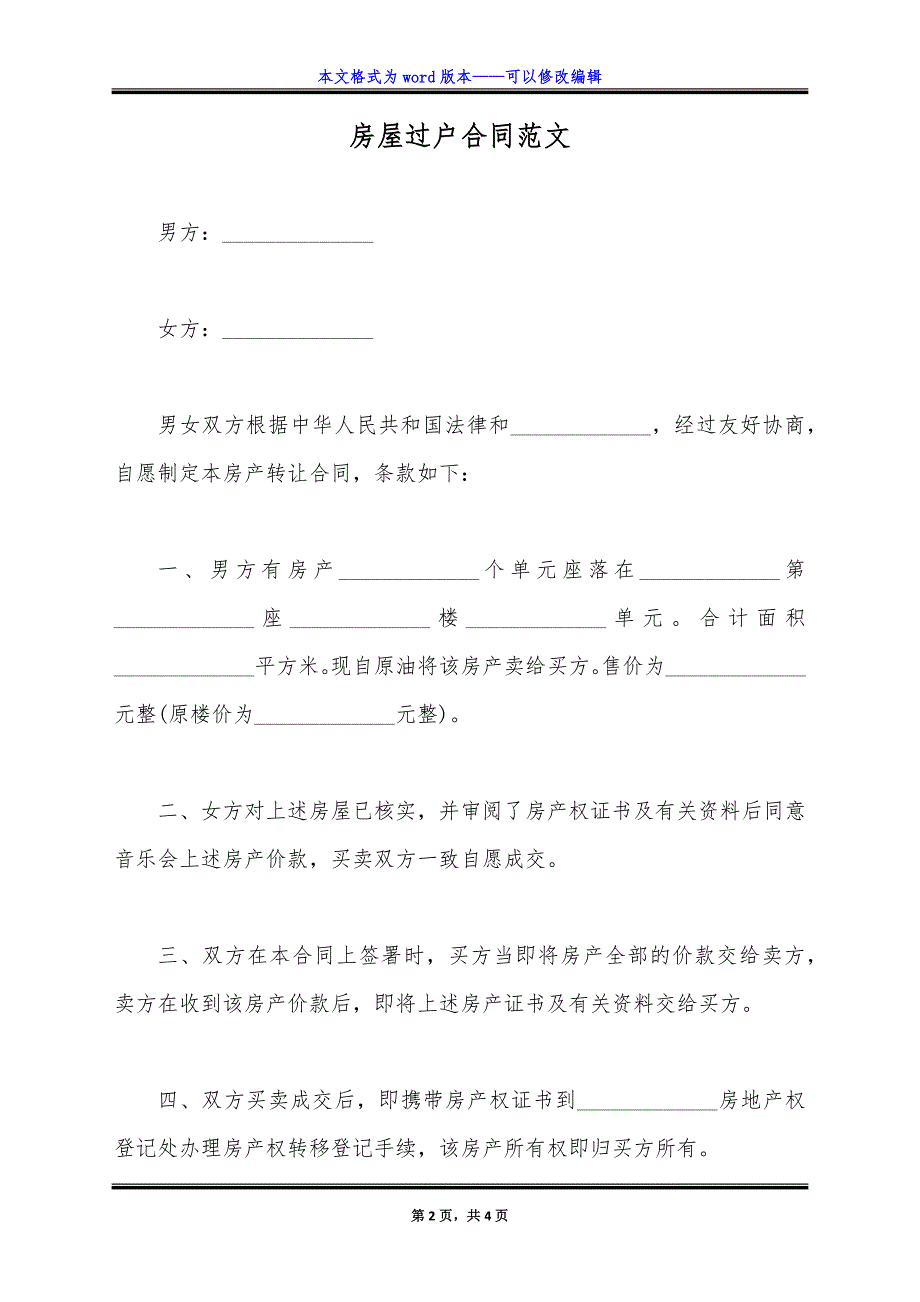 本文格式为 word 版本——可以修改编辑
房屋过户合同范文
男方：______________
女方：______________
男女双方根据中华人民共和国法律和_____________，经过友好协商，
自愿制定本房产转让合同，条款如下：
一、男方有房产_____________个单元座落在_____________第
_____________座_____________楼_____________单元。合计面积
_____________平方米。现自原油将该房产卖给买方。售价为_____________
元整(原楼价为_____________元整)。
二、女方对上述房屋已核实，并审阅了房产权证书及有关资料后同意
音乐会上述房产价款，买卖双方一致自愿成交。
三、双方在本合同上签署时，买方当即将房产全部的价款交给卖方，
卖方在收到该房产价款后，即将上述房产证书及有关资料交给买方。
四、双方买卖成交后，即携带房产权证书到_____________房地产权
登记处办理房产权转移登记手续，该房产所有权即归买方所有。
第 2 页，共 4 页